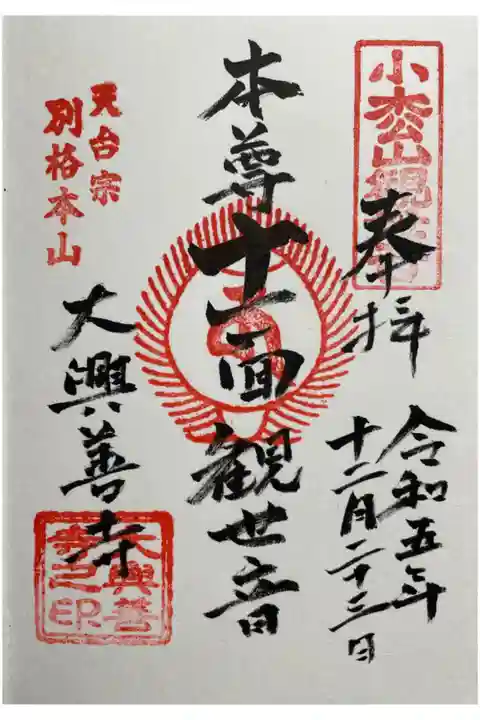 小松山観音寺
奉拝
令和五年
十二月二十三日
本尊十一面観世音
天台宗
別格本山
大興善寺
大興善
寺之印